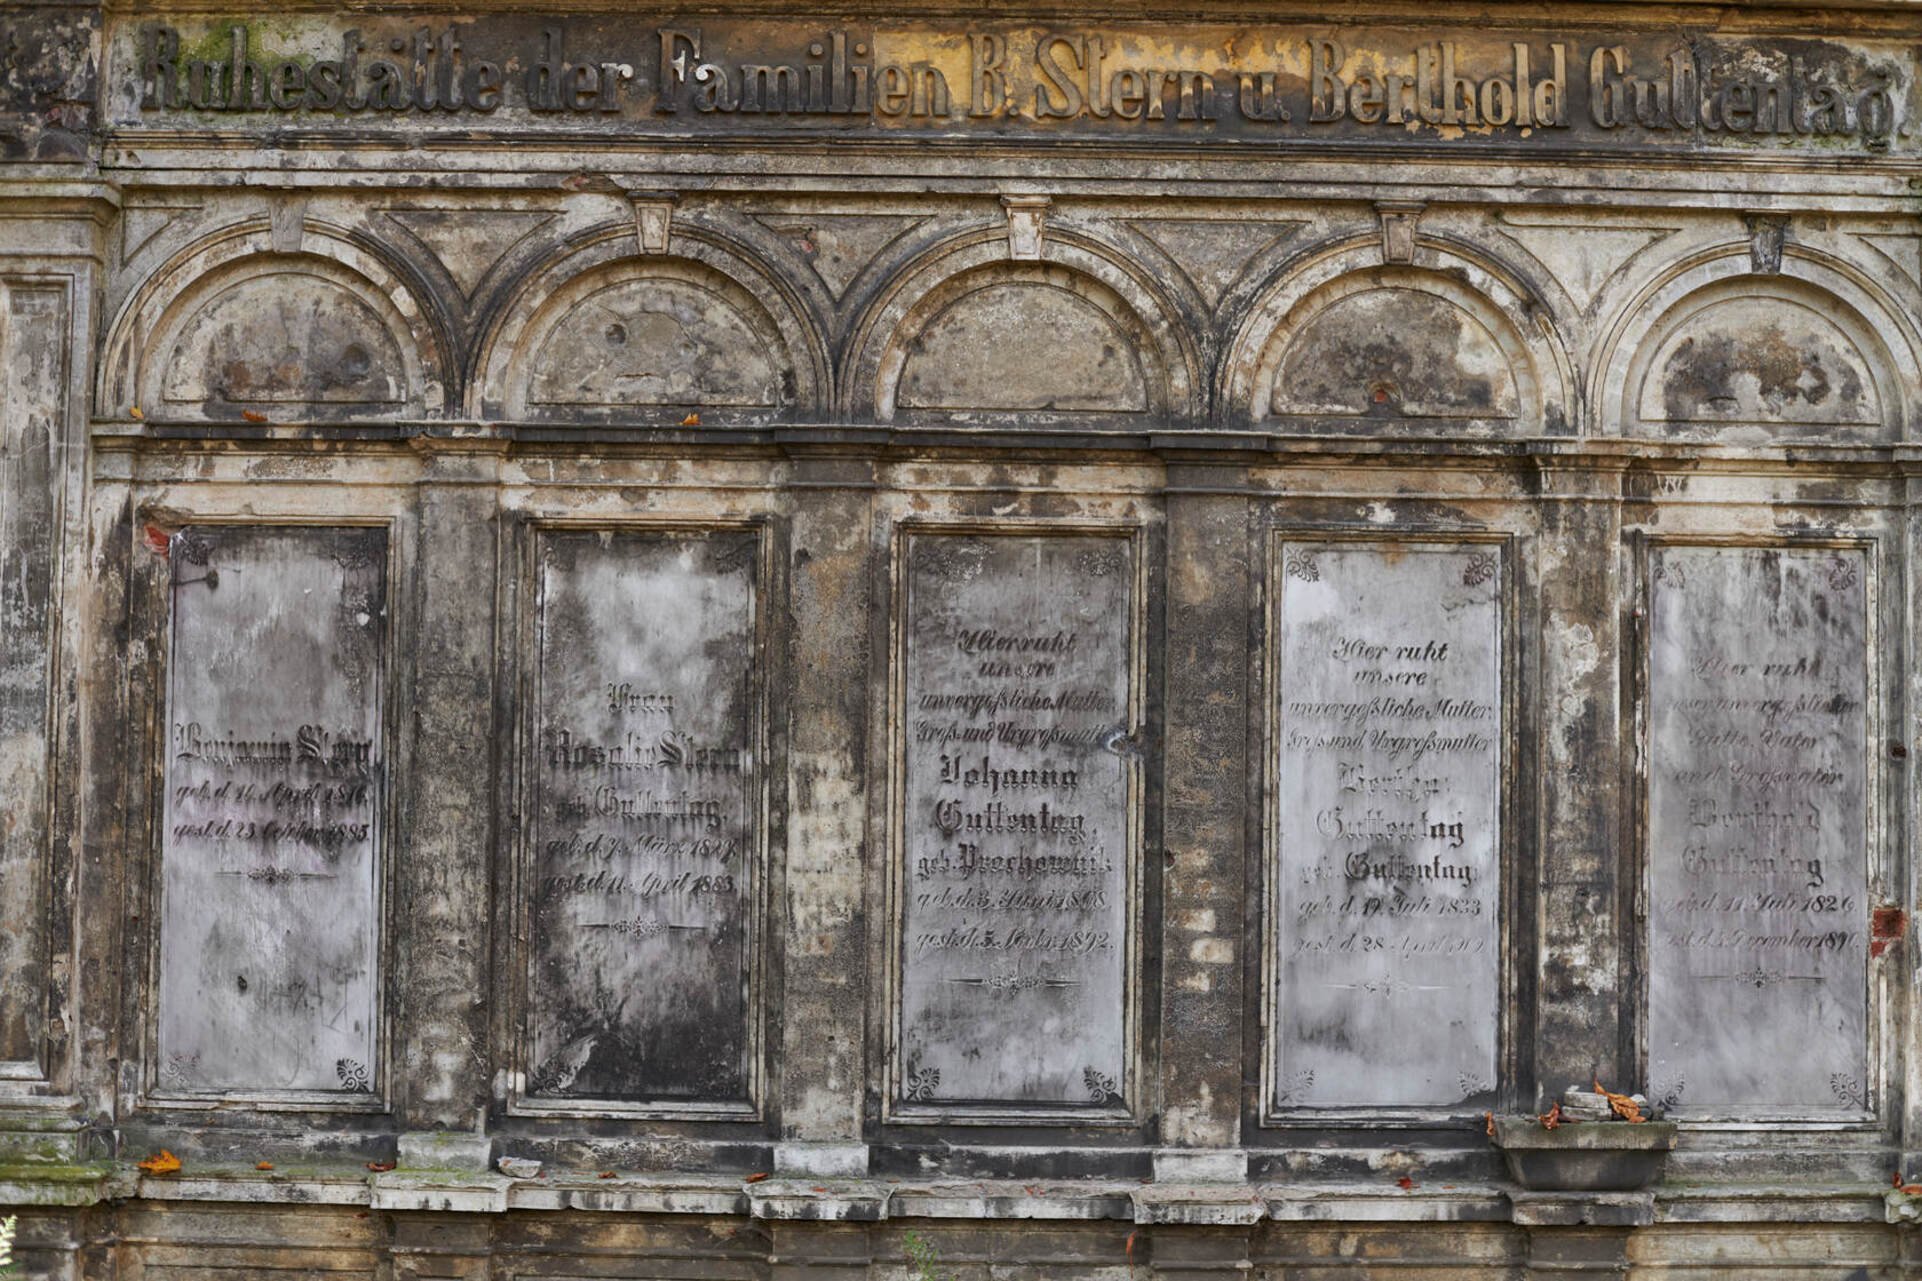 Ruhestätte der Familien B. Stern u. Berthold Guttentag.
Benjamin Stern
geb. d. 14. April
gest. d. 23. October 1885.
Frau
Rosalie Stern
geb. Guttentag,
geb. d. 7. März
gest. d. 11. April 1883.
Hier ruht
unsere
unvergeßliche Mutter
Groß- und Urgroßmutter
Johanna
Guttentag,
geb. Prochownik
geb. d. 3. Juni
gest. d. 5. 1892.
Hier ruht
unsere
unvergeßliche Mutter
Groß und Urgroßmutter
Bertha
Guttentag
geb. Guttentag,
geb. d. 17. Juli 1833
gest. d. 28. April
Hier ruht
unser unvergeßlicher
Gatte, Vater
und Großvater
Berthold
Guttentag
geb. d. 11. Juli 1826,
gest. d. December